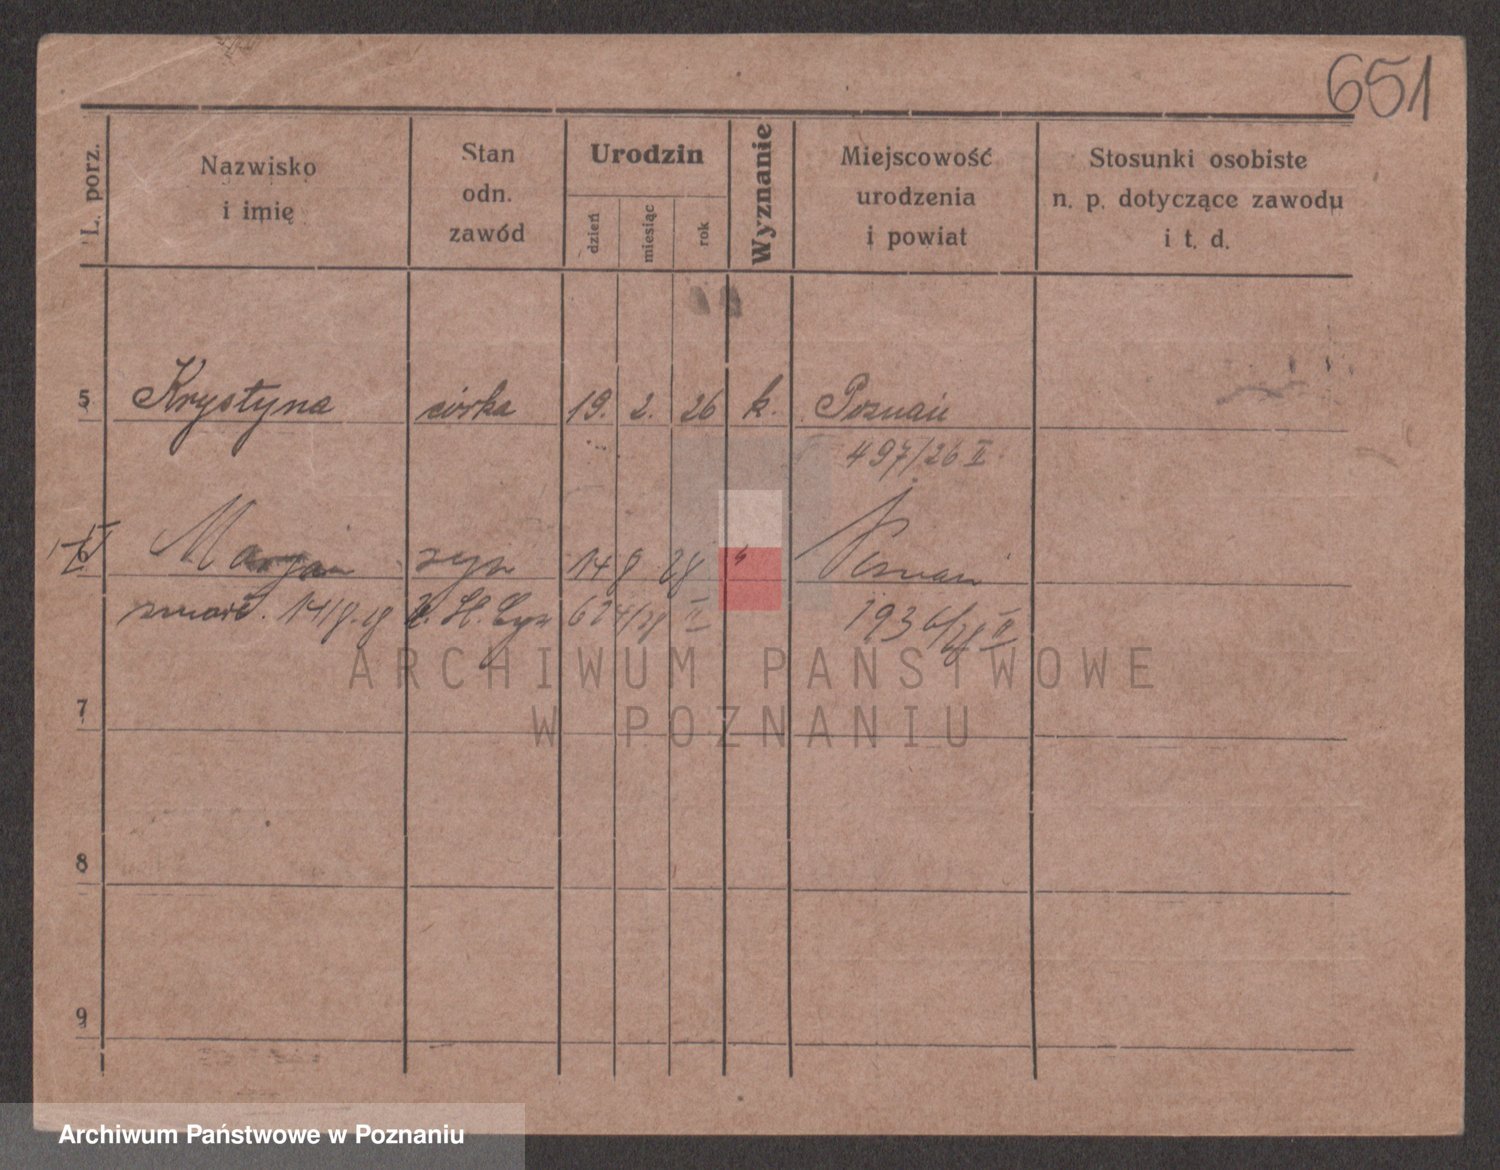 651
L. porz.
Nazwisko
i imię
Stan
odn.
zawód
Urodzin
dzień
miesiąc
rok
Wyznanie
Miejscowość
urodzenia
i powiat
Stosunki osobiste
n. p. dotyczące zawodu
i t. d.
5 Krystyna córka 19. 2. 26 k. Poznań
497/26 II
6 Marjan syn 14 9 28 Poznań
14/9. 28 624/28 II 1936/28 II
7
8
9
ARCHIWUM PAŃSTWOWE
W POZNANIU
Archiwum Państwowe w Poznaniu